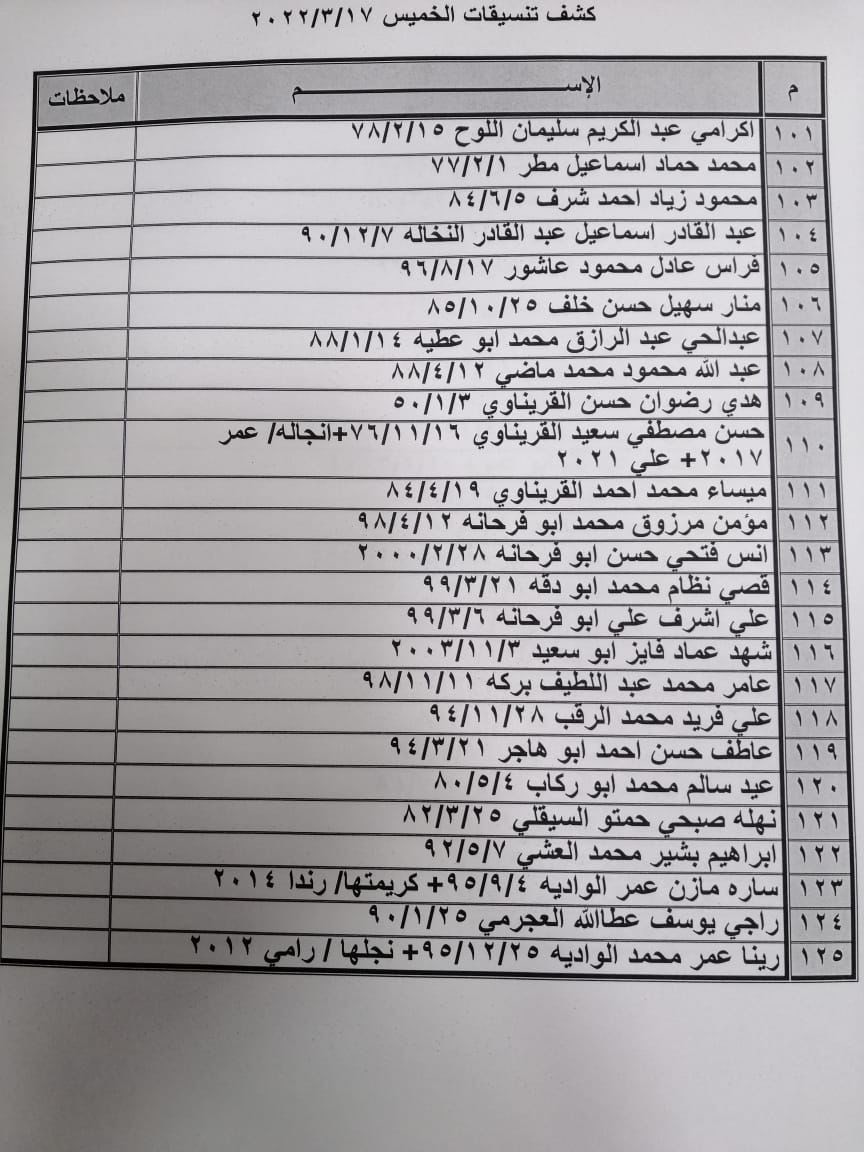 كشف تنسيقات الخميس ٢٠٢٢/٣/١٧
م الإســـــــــــم ملاحظات
١٠١ اكرامي عبد الكريم سليمان اللوح ٧٨/٢/١٥
١٠٢ محمد حماد اسماعيل مطر ٧٧/٢/١
١٠٣ محمود زياد احمد شرف ٨٤/٦/٥
١٠٤ عبد القادر اسماعيل عبد القادر النخاله ٩٠/١٢/٧
١٠٥ فراس عادل محمود عاشور ٩٦/٨/١٧
١٠٦ منار سهيل حسن خلف ٨٥/١٠/٢٥
١٠٧ عبدالحي عبد الرازق محمد ابو عطيه ٨٨/١/١٤
١٠٨ عبد الله محمود محمد ماضي ٨٨/٤/١٢
١٠٩ هدي رضوان حسن القريناوي ٥٠/١/٣
١١٠ حسن مصطفي سعيد القريناوي ٧٦/١١/١٦+انجاله/ عمر
٢٠١٧+ علي ٢٠٢١
١١١ ميساء محمد احمد القريناوي ٨٤/٤/١٩
١١٢ مؤمن مرزوق محمد ابو فرحانه ٩٨/٤/١٢
١١٣ انس فتحي حسن ابو فرحانه ٢٠٠٠/٢/٢٨
١١٤ قصي نظام محمد ابو دقه ٩٩/٣/٢١
١١٥ علي اشرف علي ابو فرحانه ٩٩/٣/٦
١١٦ شهد عماد فايز ابو سعيد ٢٠٠٣/١١/٣
١١٧ عامر محمد عبد اللطيف بركه ٩٨/١١/١١
١١٨ علي فريد محمد الرقب ٩٤/١١/٢٨
١١٩ عاطف حسن احمد ابو هاجر ٩٤/٣/٢١
١٢٠ عيد سالم محمد ابو ركاب ٨٠/٥/٤
١٢١ نهله صبحي حمتو السيقلي ٨٢/٣/٢٥
١٢٢ ابراهيم بشير محمد العشي ٩٢/٥/٧
١٢٣ ساره مازن عمر الواديه ٩٥/٩/٤+ كريمتها/ رندا ٢٠١٤
١٢٤ راجي يوسف عطاالله العجرمي ٩٠/١/٢٥
١٢٥ رينا عمر محمد الواديه ٩٥/١٢/٢٥+ نجلها / رامي ٢٠١٢